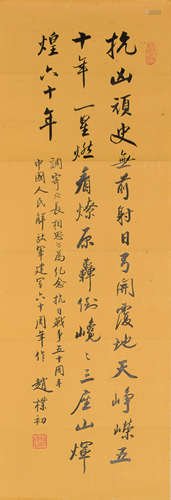 抗凶頑史無前射日弓開覆地天崢嶸五
十年一星燃看燎原轟倒嶢々三座山輝
煌六十年
調寄長相思為紀念抗日戰爭五十周年
中國人民解放軍建軍六十周年作 趙樸初